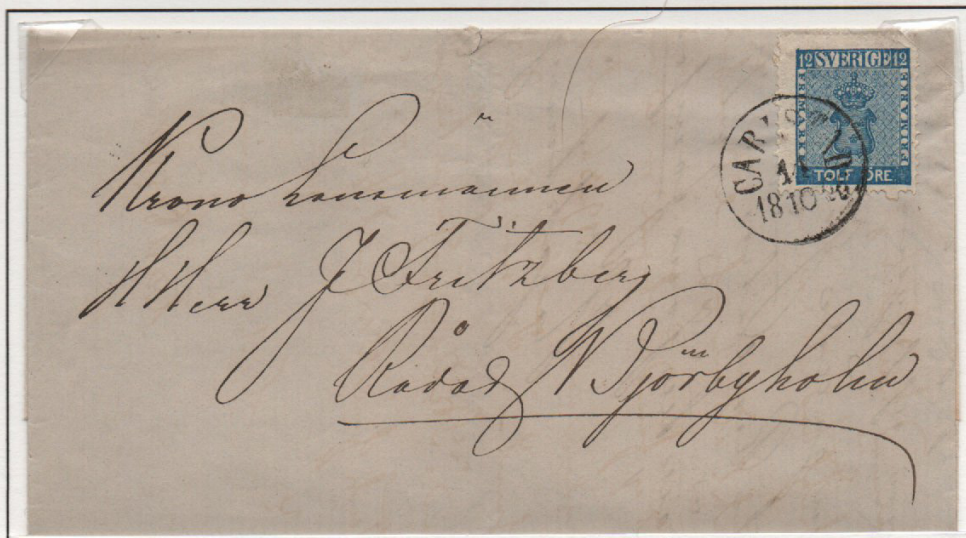 12 SVERIGE 12
TOLF ÖRE
CARLSTAD
18 10
Krono Länsmannen
HHerr J Fritzberg
Rådad